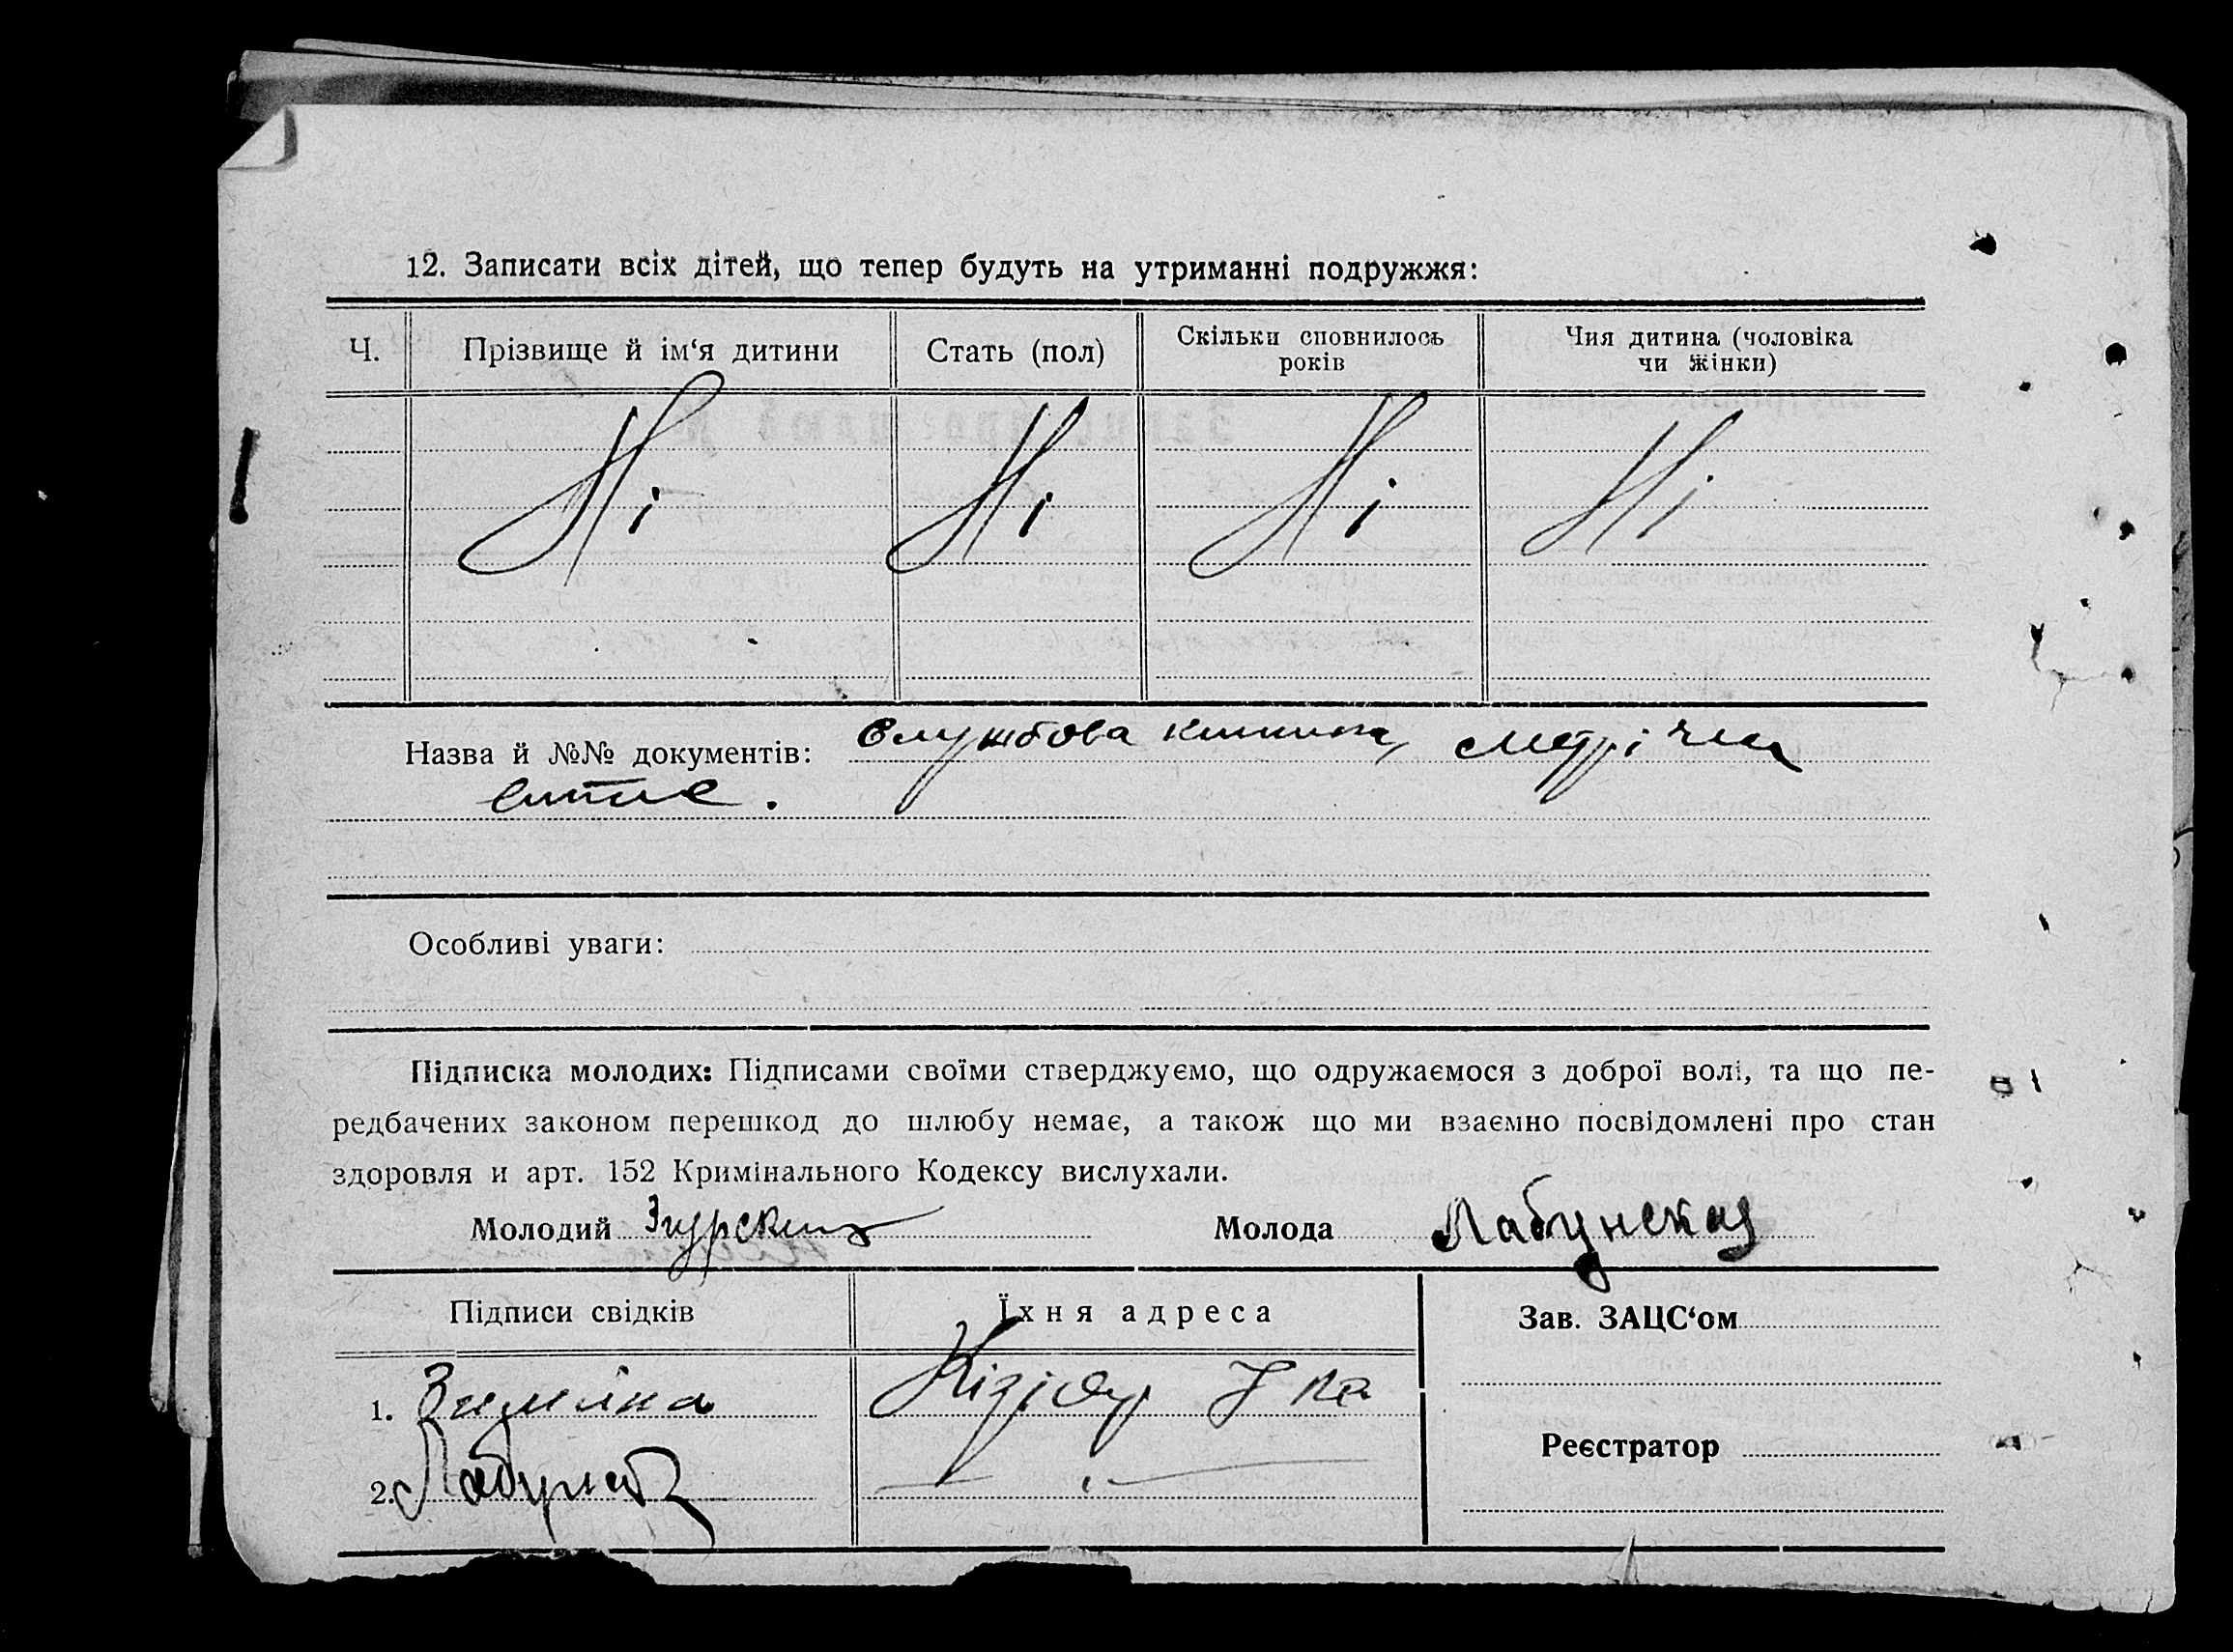 12. Записати всіх дітей, що тепер будуть на утриманні подружжя:
Ч. Прізвище й ім‘я дитини Стать (пол) Скільки сповнилось років Чия дитина (чоловіка чи жінки)
Ні Ні Ні Ні
Назва й №№ документів: Службова книжка, метрічна
Особливі уваги:
Підписка молодих: Підписами своїми стверджуємо, що одружаємося з доброї волі, та що пе-
редбачених законом перешкод до шлюбу немає, а також що ми взаємно посвідомлені про стан
здоровля и арт. 152 Кримінального Кодексу вислухали.
Молодий Згурский Молода Лабунская
Підписи свідків Їхня адреса Зав. ЗАЦС‘ом
1. Зиміна
Реєстратор
2.